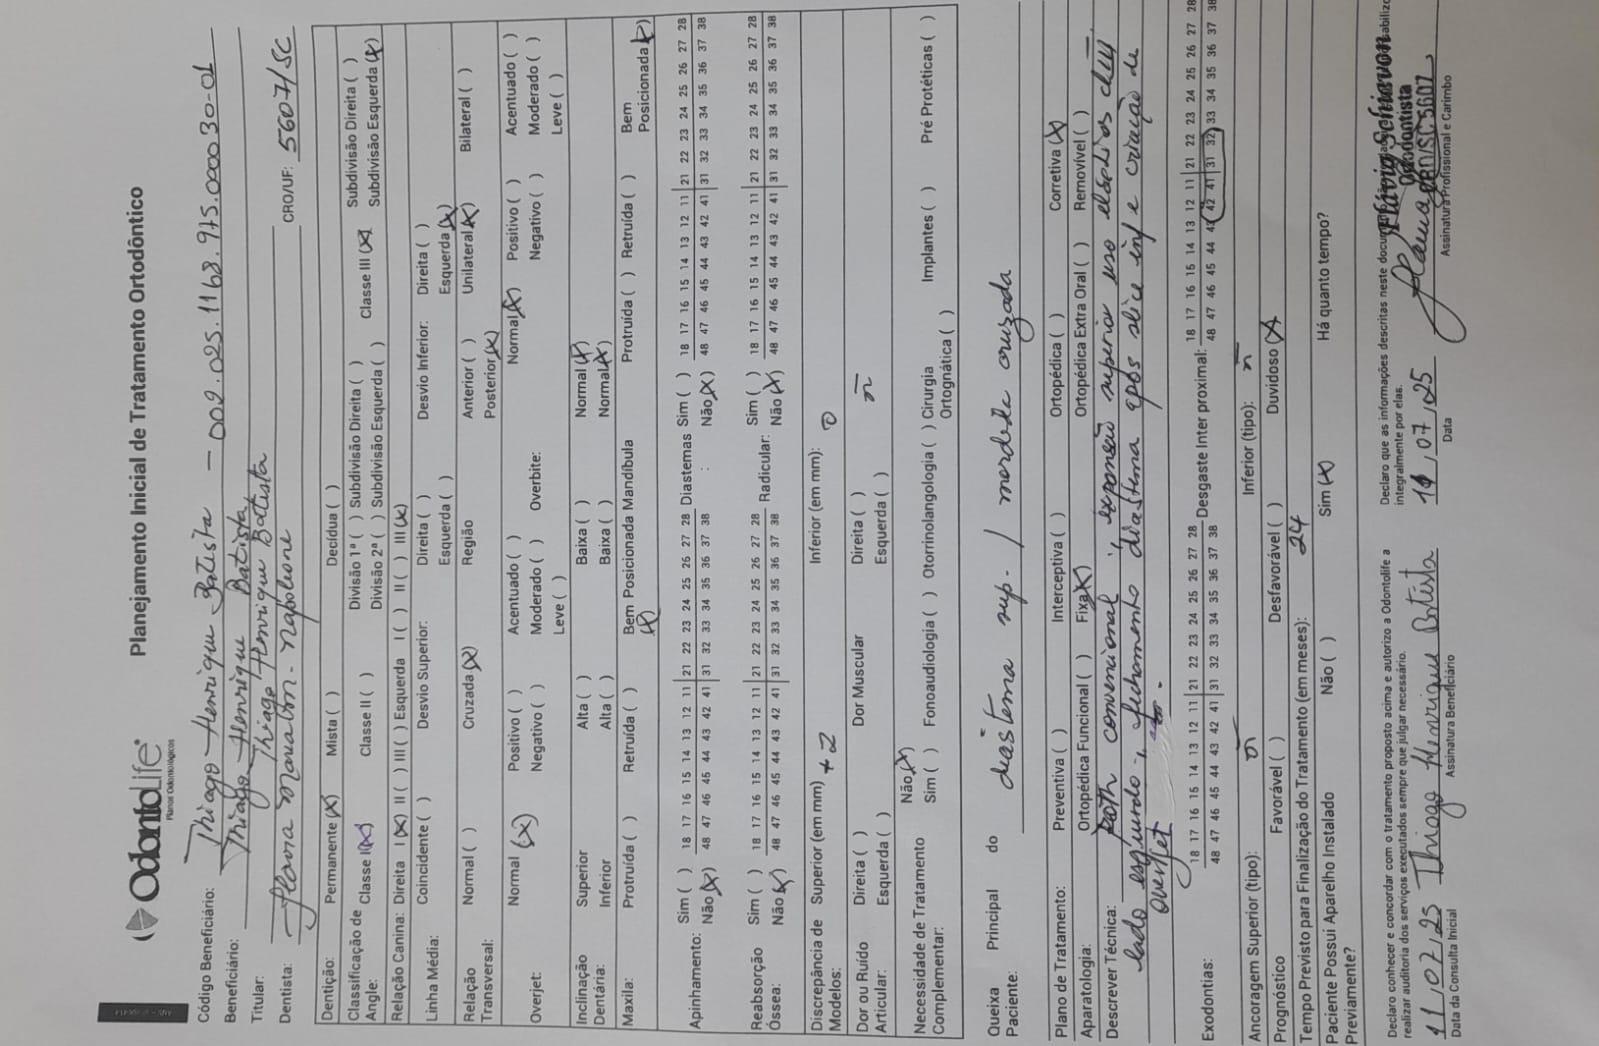 OdontoLife
Planos Odontológicos
Planejamento Inicial de Tratamento Ortodôntico
Código Beneficiário: Thiago Henrique Batista - 002.025.1168.975.0000 30-01
Beneficiário: Thiago Henrique Batista
Titular: Thiago Henrique Batista
Dentista: Flavia CRO/UF: 5607/SC
Dentição: Permanente (X) Mista ( ) Decídua ( )
Classificação de Angle: Classe I (X) Classe II ( ) Divisão 1ª ( ) Subdivisão Direita ( ) Classe III (X) Subdivisão Direita ( )
Divisão 2ª ( ) Subdivisão Esquerda ( ) Subdivisão Esquerda (X)
Relação Canina: Direita I (X) II ( ) III ( ) Esquerda I ( ) II ( ) III (X)
Linha Média: Coincidente ( ) Desvio Superior: Direita ( ) Desvio Inferior: Direita ( )
Esquerda ( ) Esquerda (X)
Relação Transversal: Normal ( ) Cruzada (X) Região Anterior ( ) Unilateral (X) Bilateral ( )
Posterior (X)
Overjet: Normal (X) Positivo ( ) Acentuado ( ) Overbite: Normal (X) Positivo ( ) Acentuado ( )
Negativo ( ) Moderado ( ) Negativo ( ) Moderado ( )
Leve ( ) Leve ( )
Inclinação Dentária: Superior Alta ( ) Baixa ( ) Normal (X)
Inferior Alta ( ) Baixa ( ) Normal (X)
Maxila: Protruída ( ) Retruída ( ) Bem Posicionada (X) Mandíbula Protruída ( ) Retruída ( ) Bem Posicionada (X)
Apinhamento: Sim ( ) 18 17 16 15 14 13 12 11 | 21 22 23 24 25 26 27 28 Diastemas : Sim ( ) 18 17 16 15 14 13 12 11 | 21 22 23 24 25 26 27 28
Não (X) 48 47 46 45 44 43 42 41 | 31 32 33 34 35 36 37 38 Não (X) 48 47 46 45 44 43 42 41 | 31 32 33 34 35 36 37 38
Reabsorção Óssea: Sim ( ) 18 17 16 15 14 13 12 11 | 21 22 23 24 25 26 27 28 Radicular: Sim ( ) 18 17 16 15 14 13 12 11 | 21 22 23 24 25 26 27 28
Não (X) 48 47 46 45 44 43 42 41 | 31 32 33 34 35 36 37 38 Não (X) 48 47 46 45 44 43 42 41 | 31 32 33 34 35 36 37 38
Discrepância de Modelos: Superior (em mm) +2 Inferior (em mm): 0
Dor ou Ruído Articular: Direita ( ) Dor Muscular Direita ( ) ñ
Esquerda ( ) Esquerda ( )
Necessidade de Tratamento Complementar: Não (X)
Sim ( ) Fonoaudiologia ( ) Otorrinolangologia ( ) Cirurgia Ortognática ( ) Implantes ( ) Pré Protéticas ( )
Queixa Principal do Paciente: diastema sup. / mordida cruzada
Plano de Tratamento: Preventiva ( ) Interceptiva ( ) Ortopédica ( ) Corretiva (X)
Aparatologia: Ortopédica Funcional ( ) Fixa (X) Ortopédica Extra Oral ( ) Removível ( )
Descrever Técnica: Roth convencional, expansão superior uso elásticos
lado esquerdo, fechamento diastema após slice inf e criação de
overjet
Exodontias: 18 17 16 15 14 13 12 11 | 21 22 23 24 25 26 27 28 Desgaste Inter proximal: 18 17 16 15 14 13 12 11 | 21 22 23 24 25 26 27 28
48 47 46 45 44 43 42 41 | 31 32 33 34 35 36 37 38 48 47 46 45 44 43 42 41 | 31 32 33 34 35 36 37 38
Ancoragem Superior (tipo): ñ Inferior (tipo): ñ
Prognóstico Favorável ( ) Desfavorável ( ) Duvidoso (X)
Tempo Previsto para Finalização do Tratamento (em meses): 24
Paciente Possui Aparelho Instalado Previamente? Não ( ) Sim (X) Há quanto tempo?
Declaro conhecer e concordar com o tratamento proposto acima e autorizo a Odontolife a
realizar auditoria dos serviços executados sempre que julgar necessário.
Declaro que as informações descritas neste
integralmente por elas.
11,07,25 Thiago Henrique Batista 11,07,25
Data da Consulta Inicial Assinatura Beneficiário Data Assinatura Profissional e Carimbo
Flávia Schiavon
Odontista
CRO/SC 5607